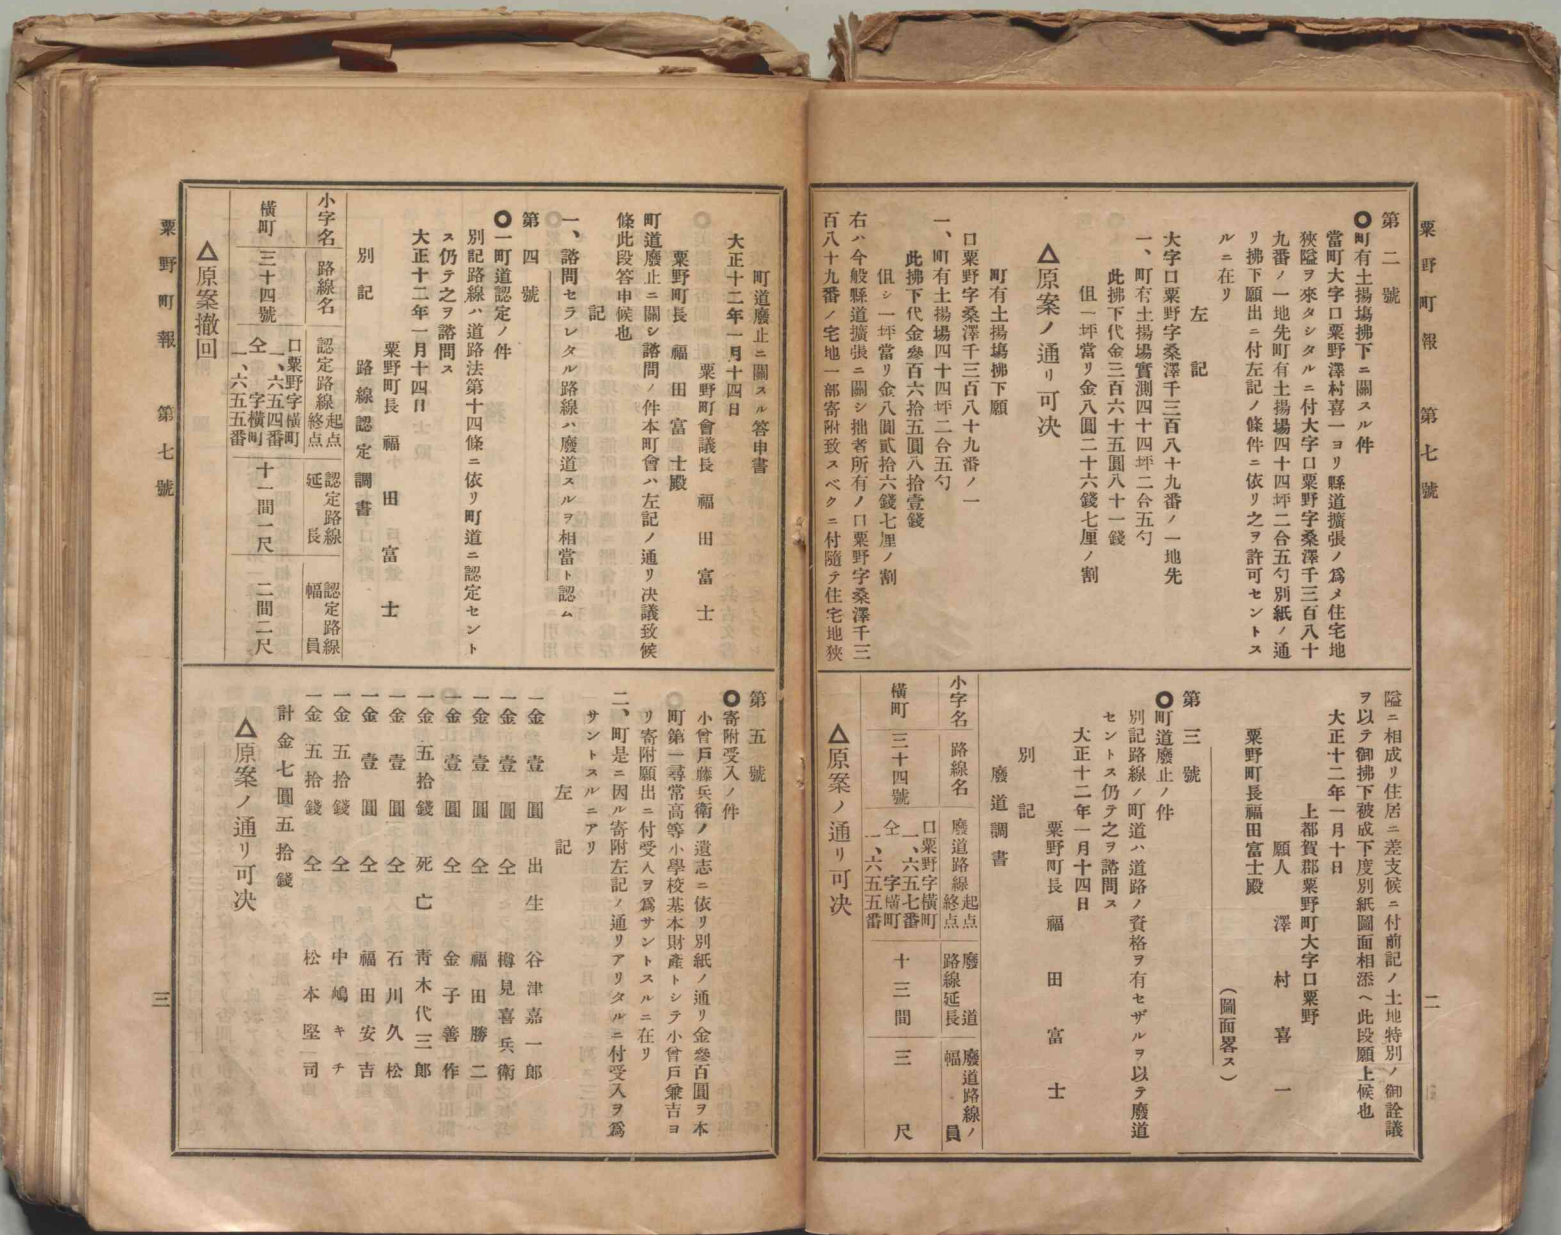 粟野町報 第七號
二
第二號
〇町有土揚塲拂下ニ關スル件
當町大字口粟野澤村喜一ヨリ縣道擴張ノ爲メ住宅地
狹隘ヲ來タシタルニ付大字口粟野字桑澤千三百八十
九番ノ一地先町有土揚塲四十四坪二合五勺別紙ノ通
リ拂下願出ニ付左記ノ條件ニ依リ之ヲ許可セントス
ルニ在リ
左記
大字口粟野字桑澤千三百八十九番ノ一地先
一、町有土揚塲實測四十四坪二合五勺
此拂下代金三百六十五圓八十一錢
但一坪當リ金八圓二十六錢七厘ノ割
△原案ノ通リ可决
町有土揚塲拂下願
口粟野字桑澤千三百八十九番ノ一
一、町有土揚塲四十四坪二合五勺
此拂下代金參百六拾五圓八拾壹錢
但シ一坪當リ金八圓貳拾六錢七厘ノ割
右ハ今般縣道擴張ニ關シ拙者所有ノ口粟野字桑澤千三
百八十九番ノ宅地一部寄附致スベクニ付隨テ住宅地狹
隘ニ相成リ住居ニ差支候ニ付前記ノ土地特別ノ御詮議
ヲ以テ御拂下被成下度別紙圖面相添ヘ此段願上候也
大正十二年一月十日
上都賀郡粟野町大字口粟野
願人 澤村喜一
粟野町長福田富士殿
(圖面畧ス)
第三號
〇町道廢止ノ件
別記路線ノ町道ハ道路ノ資格ヲ有セザルヲ以テ廢道
セントス仍テ之ヲ諮問ス
大正十二年一月十四日
粟野町長 福田富士
別記
廢道調書
小字名 路線名 廢道路線起点終点 廢道路線延長 廢道路線ノ幅員
横町 三十四號 口粟野字横町一、六五七番 仝字横町一、六五五番 十三間 三尺
△原案ノ通リ可决
町道廢止ニ關スル答申書
大正十二年一月十四日
粟野町會議長 福田富士
粟野町長 福田富士殿
町道廢止ニ關シ諮問ノ件本町會ハ左記ノ通リ决議致候
條此段答申候也
記
一、諮問セラレタル路線ハ廢道スルヲ相當ト認ム
第四號
〇一町道認定ノ件
別記路線ハ道路法第十四條ニ依リ町道ニ認定セント
ス仍テ之ヲ諮問ス
大正十二年一月十四日
粟野町長 福田富士
別記 路線認定調書
小字名 路線名 認定路線起点終点 認定路線延長 認定路線幅員
横町 三十四號 口粟野字横町一、六五四番 仝字横町一、六五五番 十一間一尺 二間二尺
△原案撤回
第五號
〇寄附受入ノ件
小曾戸藤兵衛ノ遺志ニ依リ別紙ノ通リ金參百圓ヲ本
町第一尋常高等小學校基本財產トシテ小曾戸兼吉ヨ
リ寄附願出ニ付受入ヲ爲サントスルニ在リ
二、町是ニ因ル寄附左記ノ通リアリタルニ付受入ヲ爲
サントスルニアリ
左記
一金壹圓 出生 谷津嘉一郎
一金壹圓 仝 樽見喜兵衛
一金壹圓 仝 福田勝二
一金壹圓 仝 金子善作
一金五拾錢 死亡 靑木代三郎
一金壹圓 仝 石川久松
一金壹圓 仝 福田安吉
一金五拾錢 仝 中嶋キチ
一金五拾錢 仝 松本堅司
計金七圓五拾錢
△原案ノ通リ可决
粟野町報 第七號
三